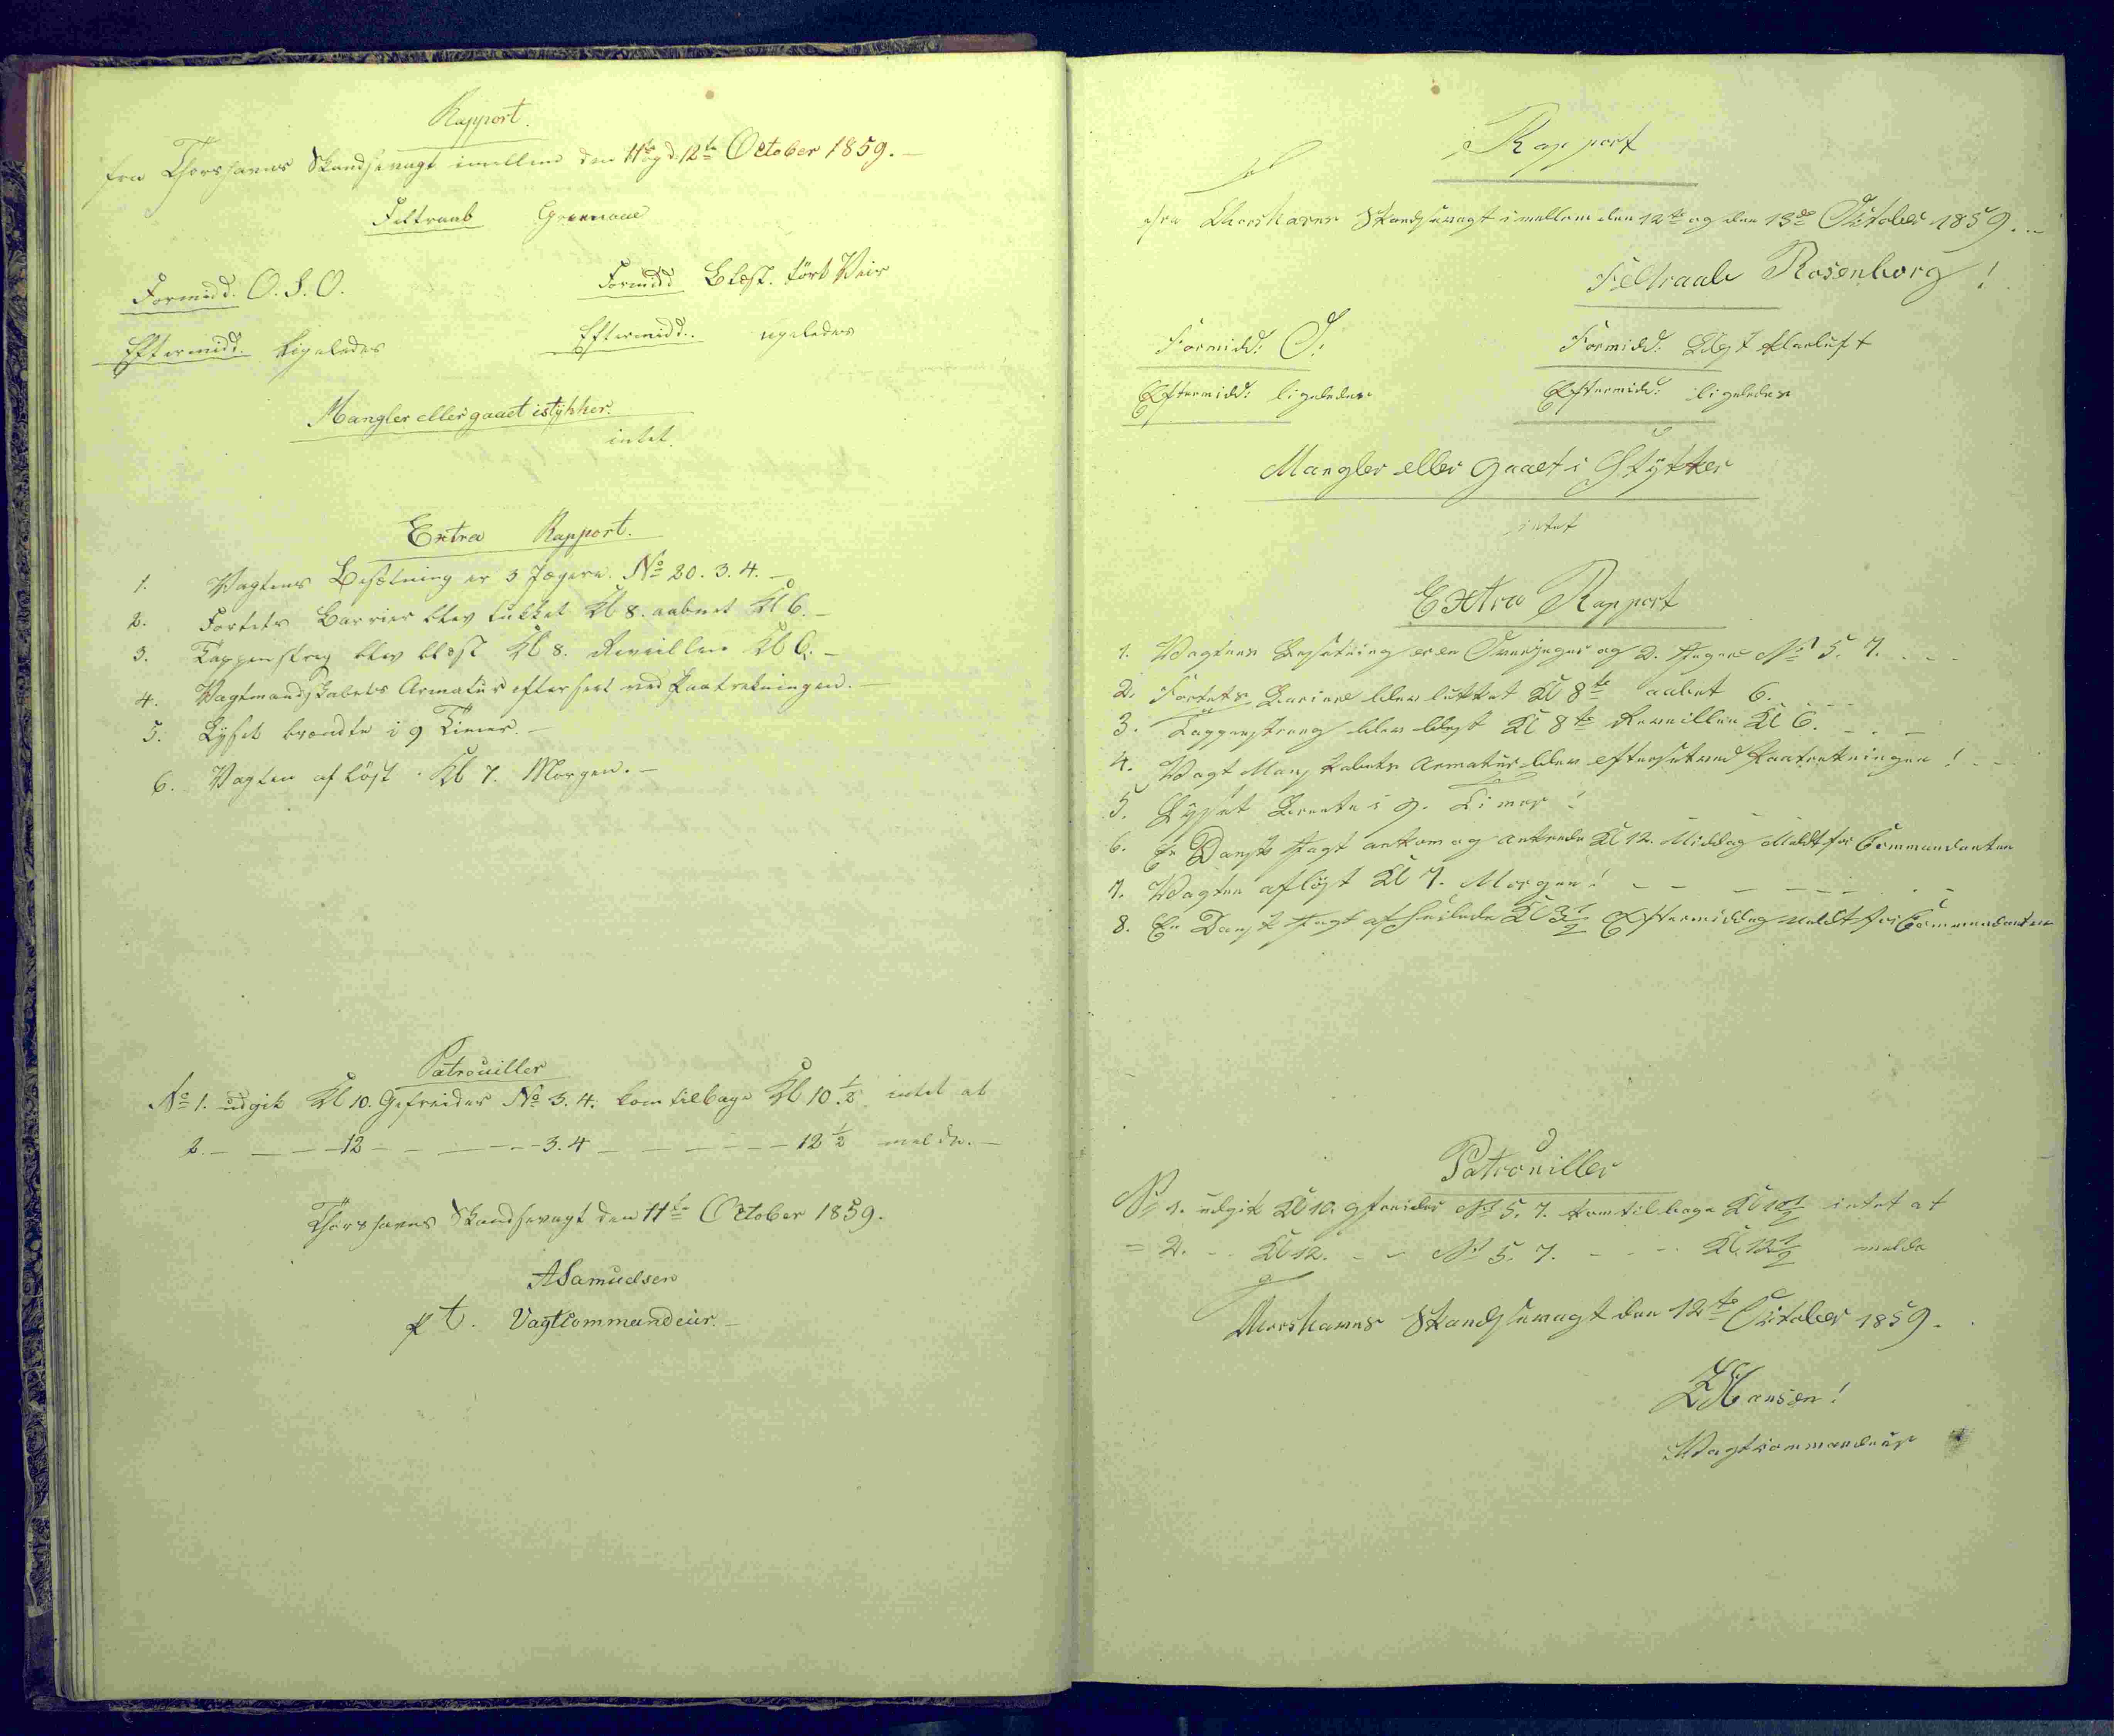 Rapport.
fra Thorshavns Skandsevagt imellem den 11te og d. 12te October 1859.
Feltraab
Formidd. O.S.O.
Formidd Blæst. tört Veir
Eftermidd. ligeledes
Eftermidd. ligeledes
Mangler eller gaaet istÿkker.
intet.
Extra Rapport.
1. Vagtens Besætning er 3 Jægere. No 20. 3. 4.
2. Fortets Barrier blev lukket Kl 8. aabnet Kl 6.
3. Tappenstreg blev blæst Kl 8. Reveillen Kl 6.
4. Vagtmandskabets Armatur efterseet ved Paatrekningen.
5. Lÿset brændte i 9 Timer.
6. Vagten aflöst Kl 7. Morgen.
Patrouiller
No 1. udgik Kl 10. Gefreider No 3. 4. kom tilbage Kl 10 1/2 intet at
2. — 12 — 3. 4 — 12 1/2 melde.
Thorshavns Skandsevagt den 11te October 1859.
ASamuelsen
pt. Vagtcommandeur.
Rapport
fra Thorshavns Skandsevagt imellem den 12te og den 13de Oktober 1859.
Feltraab Rosenborg!
Formidd: O:
Formidd: Blæst klarluft
Eftermidd: ligeledes
Eftermidd: ligeledes
Mangler eller gaaet i Stÿkker
intet
Extra Rapport
1. Vagtens Besætning er en Overjæger og 2. Jæger No 5. 7.
2. Fortets Bariere blev lukket Kl 8te aabnet 6.
3. Tappenstreng blev blæst Kl 8te Reveillen Kl 6.
4. Vagt Manskabets Armatur blev efterset ved Paatrekningen!
5. Lÿset Brente i 9. Timer!
6. En Dansk Jagt ankom og ankrede Kl 12. Middag Meldt for Commandanten
7. Vagten aflöst Kl 7. Morgen!
8. En Dansk Jagt afseilede Kl 3 1/2 Eftermiddag meldt for Commandanten
Patrouiller
No 1. udgik Kl 10. gfreider No 5. 7. kom tilbage Kl 10 1/2 intet at
= 2. - - Kl 12. - - No 5. 7. - - - Kl 12 1/2 melde
Thorshavns Skandsevagt den 12te Oktober 1859.
Hansen!
Vagtcommandeur